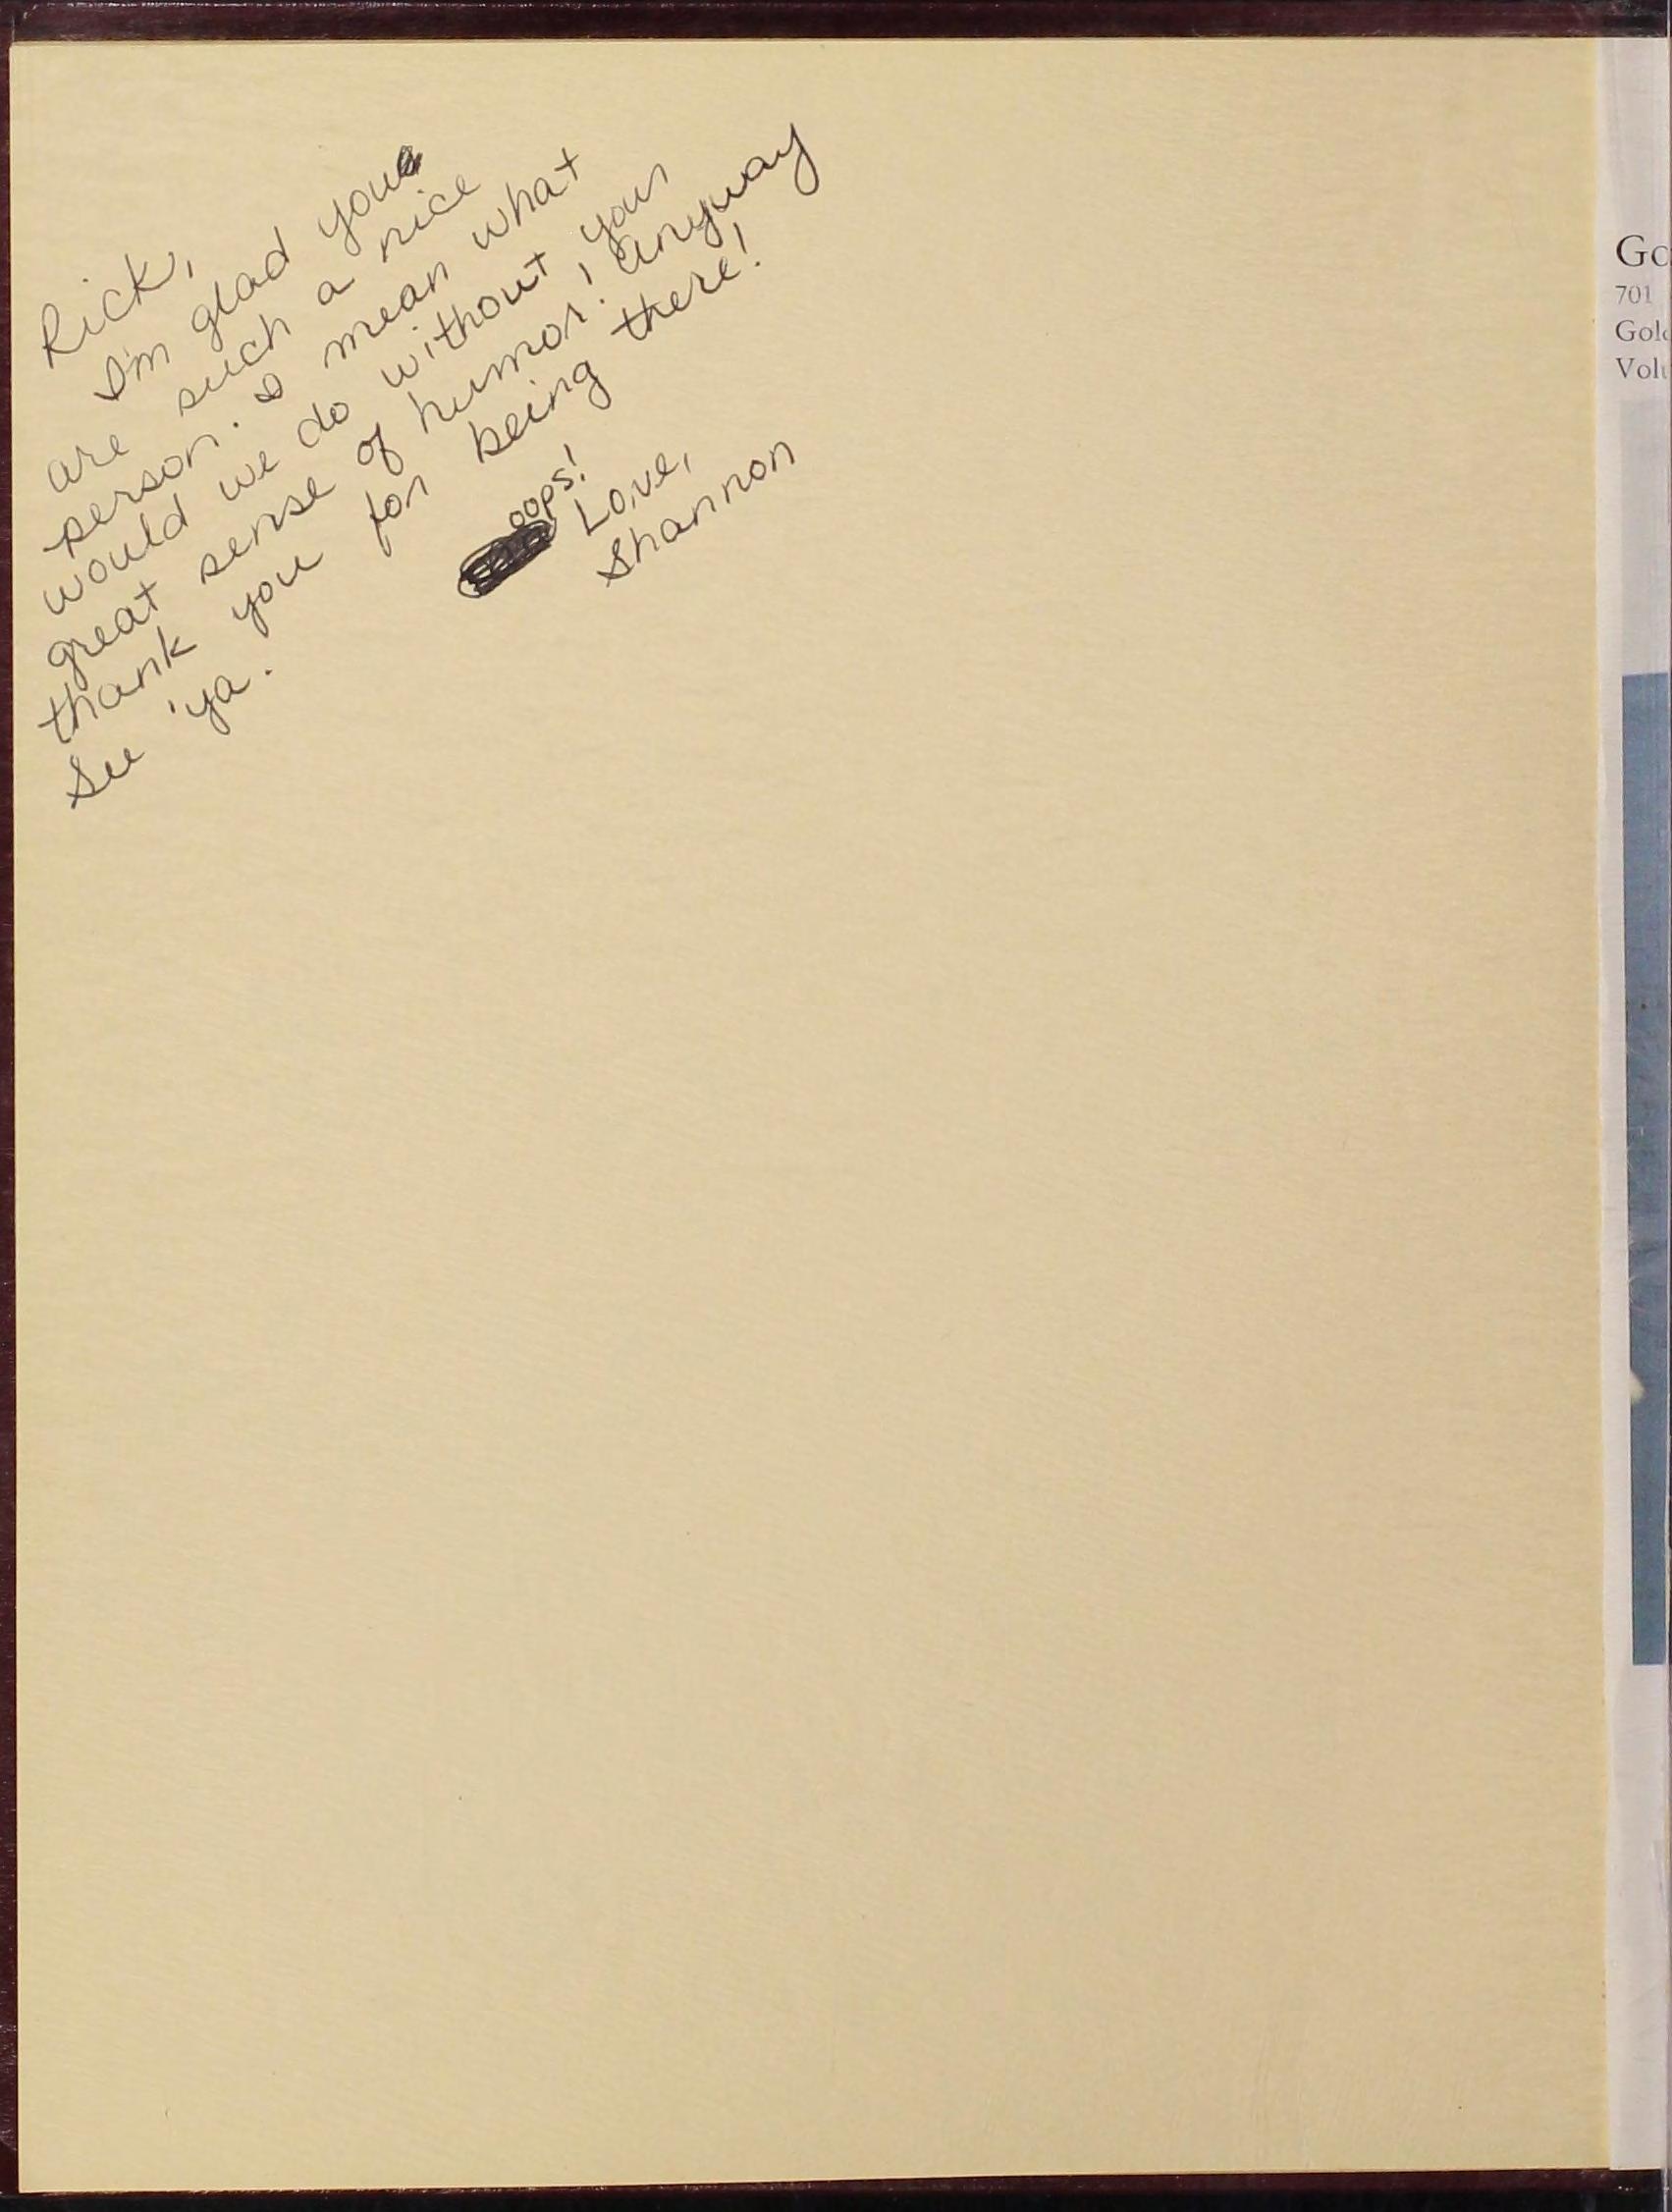 Rick,
I'm glad you
are such a nice
person. I mean what
would we do without your
great sense of humor! Anyway
thank you for being there!
See 'ya.
oops!
Love,
Shannon
Go
701
Gold
Volu